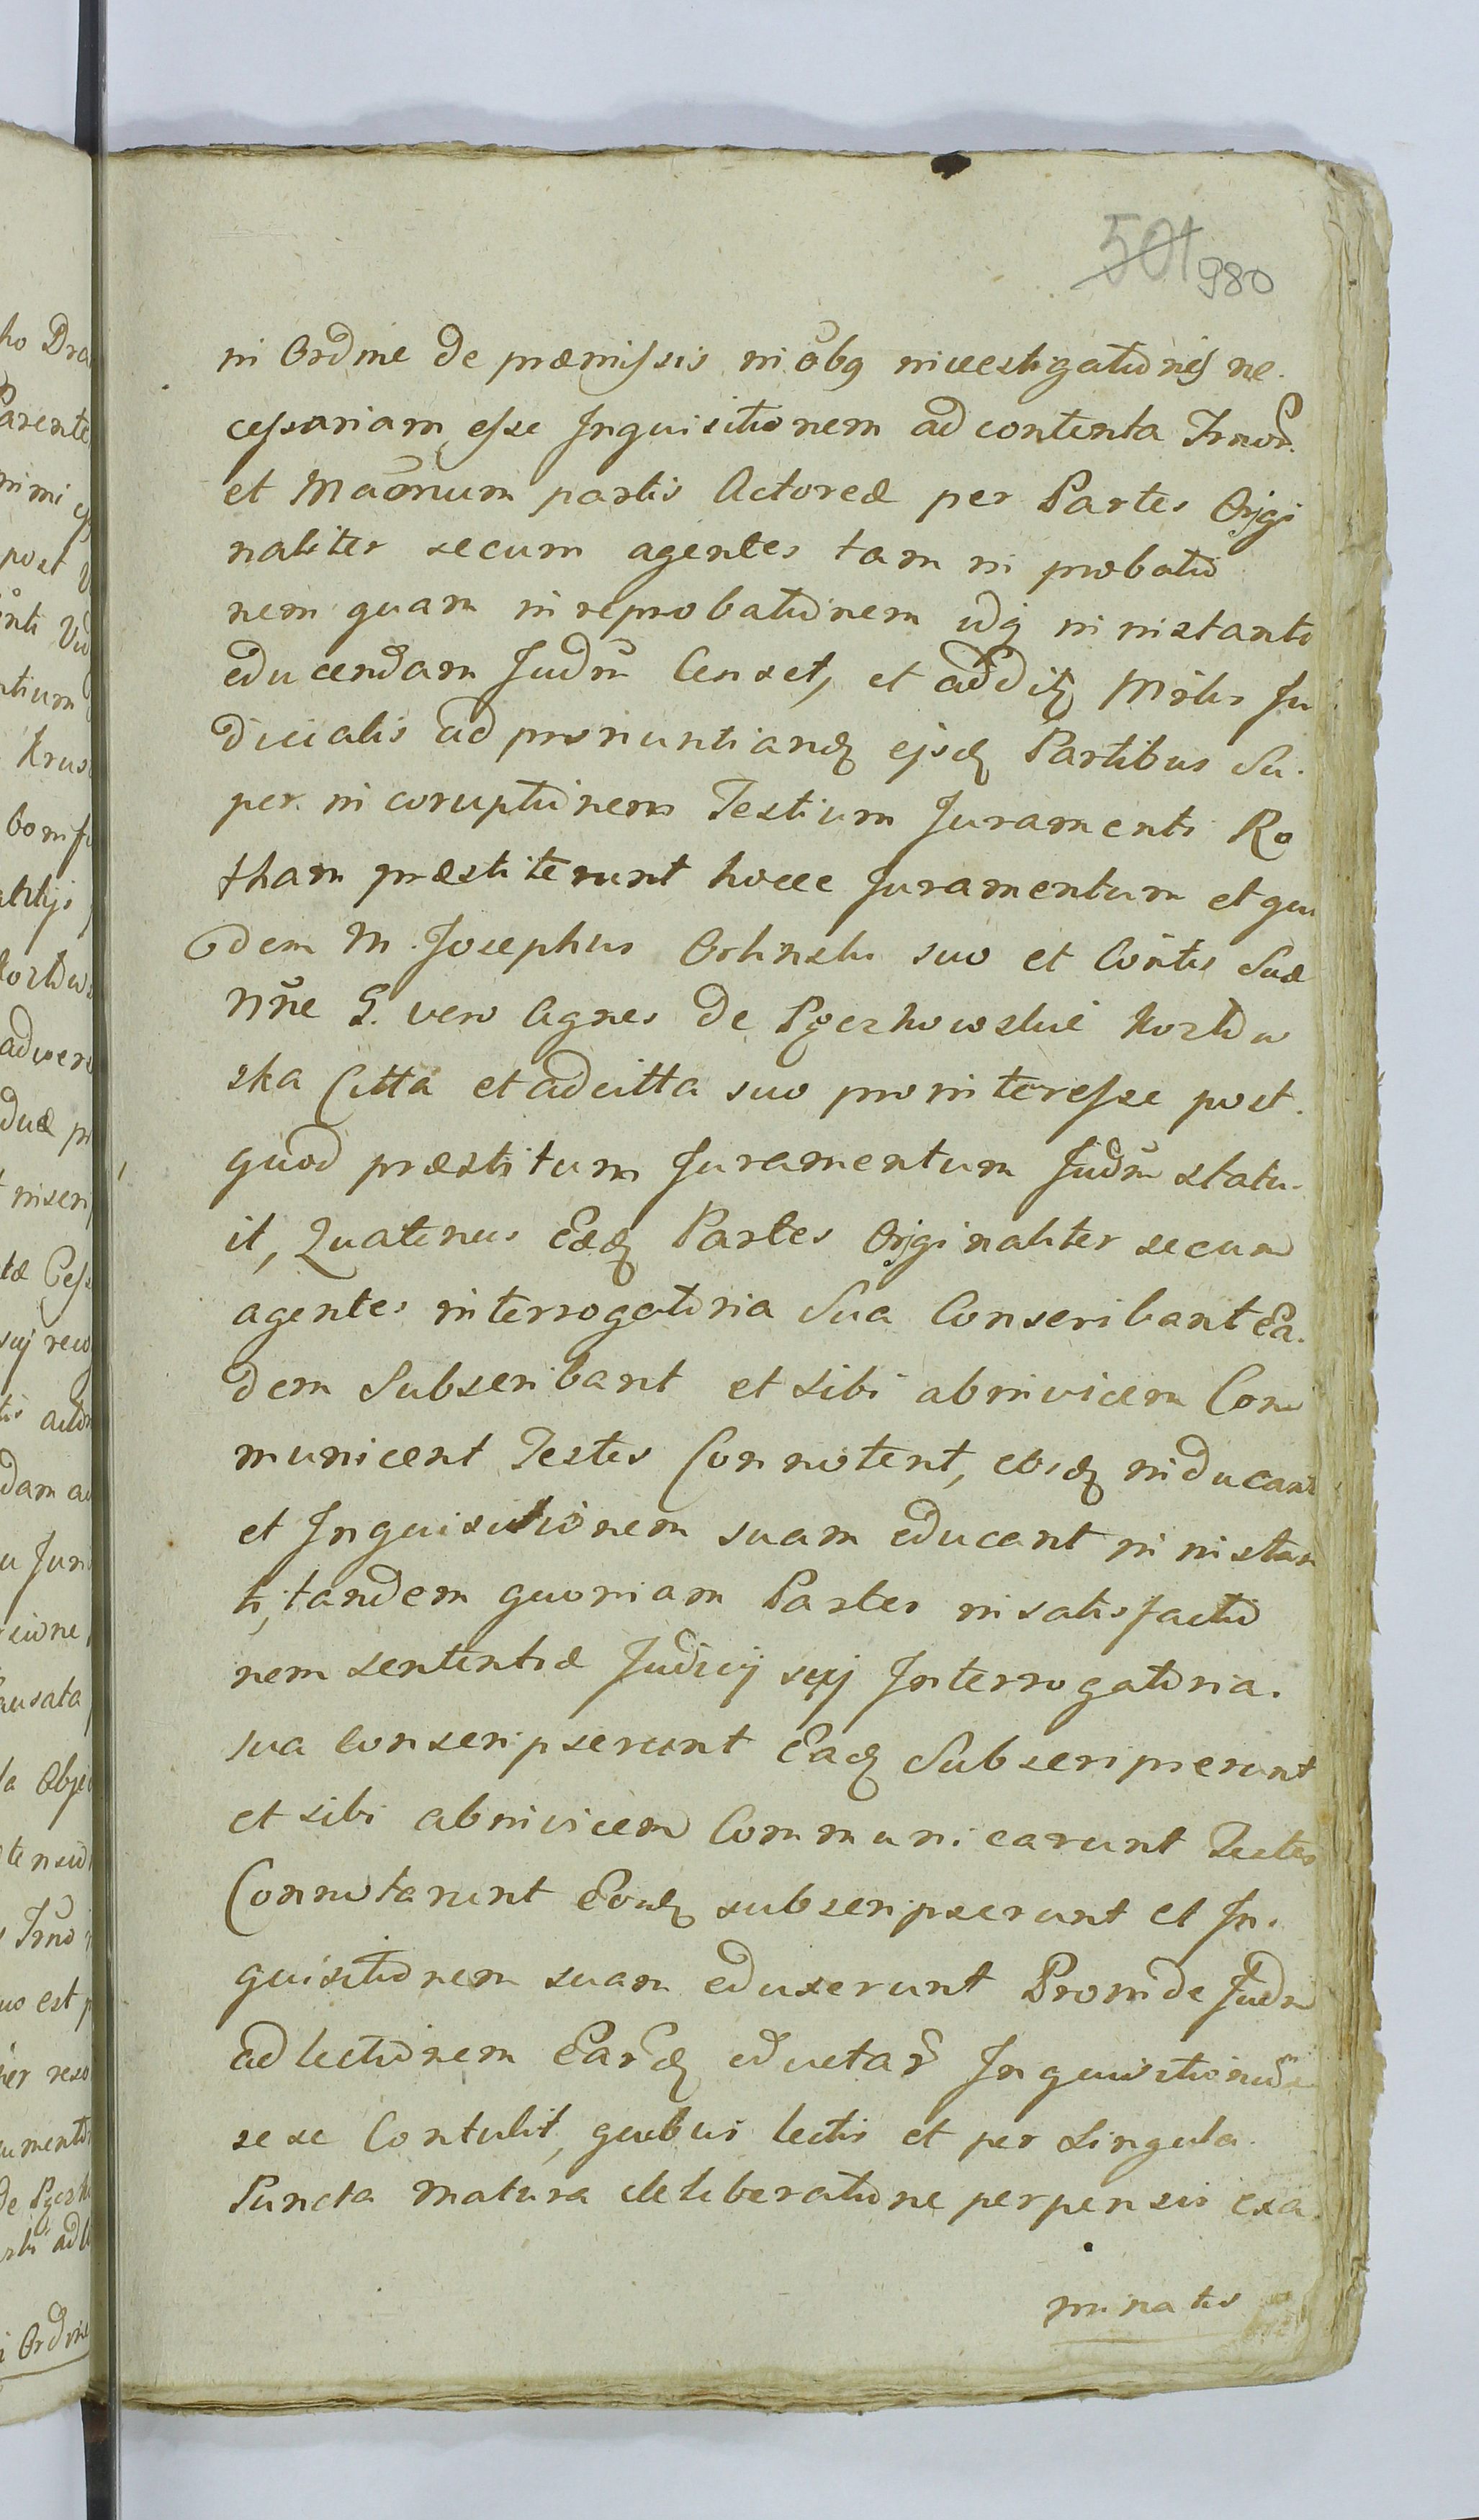 501 980
in Ordine de præmissis in o͠bq investigationis ne.
cessariam esse Inquisitionem ad contenta
et partis Actoreæ per Partes Orjgi
naliter secum agentes tam in probatio
nem quam in reprobationem idq in instanti
educendam Jud͠m Censet, et addit͠ Mrlis Ju
dicialis ad pronuntiand͠ ejsd͠ Partibus Su.
per incoruptionem Testium Juramenti Ro
tham præstiterunt hocce Juramentum et qui
dem M. Josephus Orlinski suo et Con͠tis Suæ
N͠ne G. vero Agnes de Pgczkowskie Kozłow
ska Citta et adcitta suo pro interesse post.
quod præstitum Juramentum Jud͠m statu.
it, Quatenus Eæd͠ Partes Orjginaliter secum
agentes interrogatoria Sua Conscribant Ea.
dem Subscribant et sibi abinvicem Com
municent Testes Connotent, eosd͠ inducant
et Inquisitionem suam educant in instan
ti, tandem quoniam Partes in satisfactio
nem sententiæ Judicij suj Interrogatoria.
sua conscripserunt Ead͠ Subscripserunt
et sibi abinvicem Communicarunt Testes
Connotarunt Eosd͠ subscripserunt et In.
quisitionem suam eduxerunt Proinde Jud͠m
ad lectionem Ear͠d͠ eductar͠ Inquisitionum
sese Contulit, quibus lectis et per Singula
Puncta matura deliberatione perpensis exa.
minatis